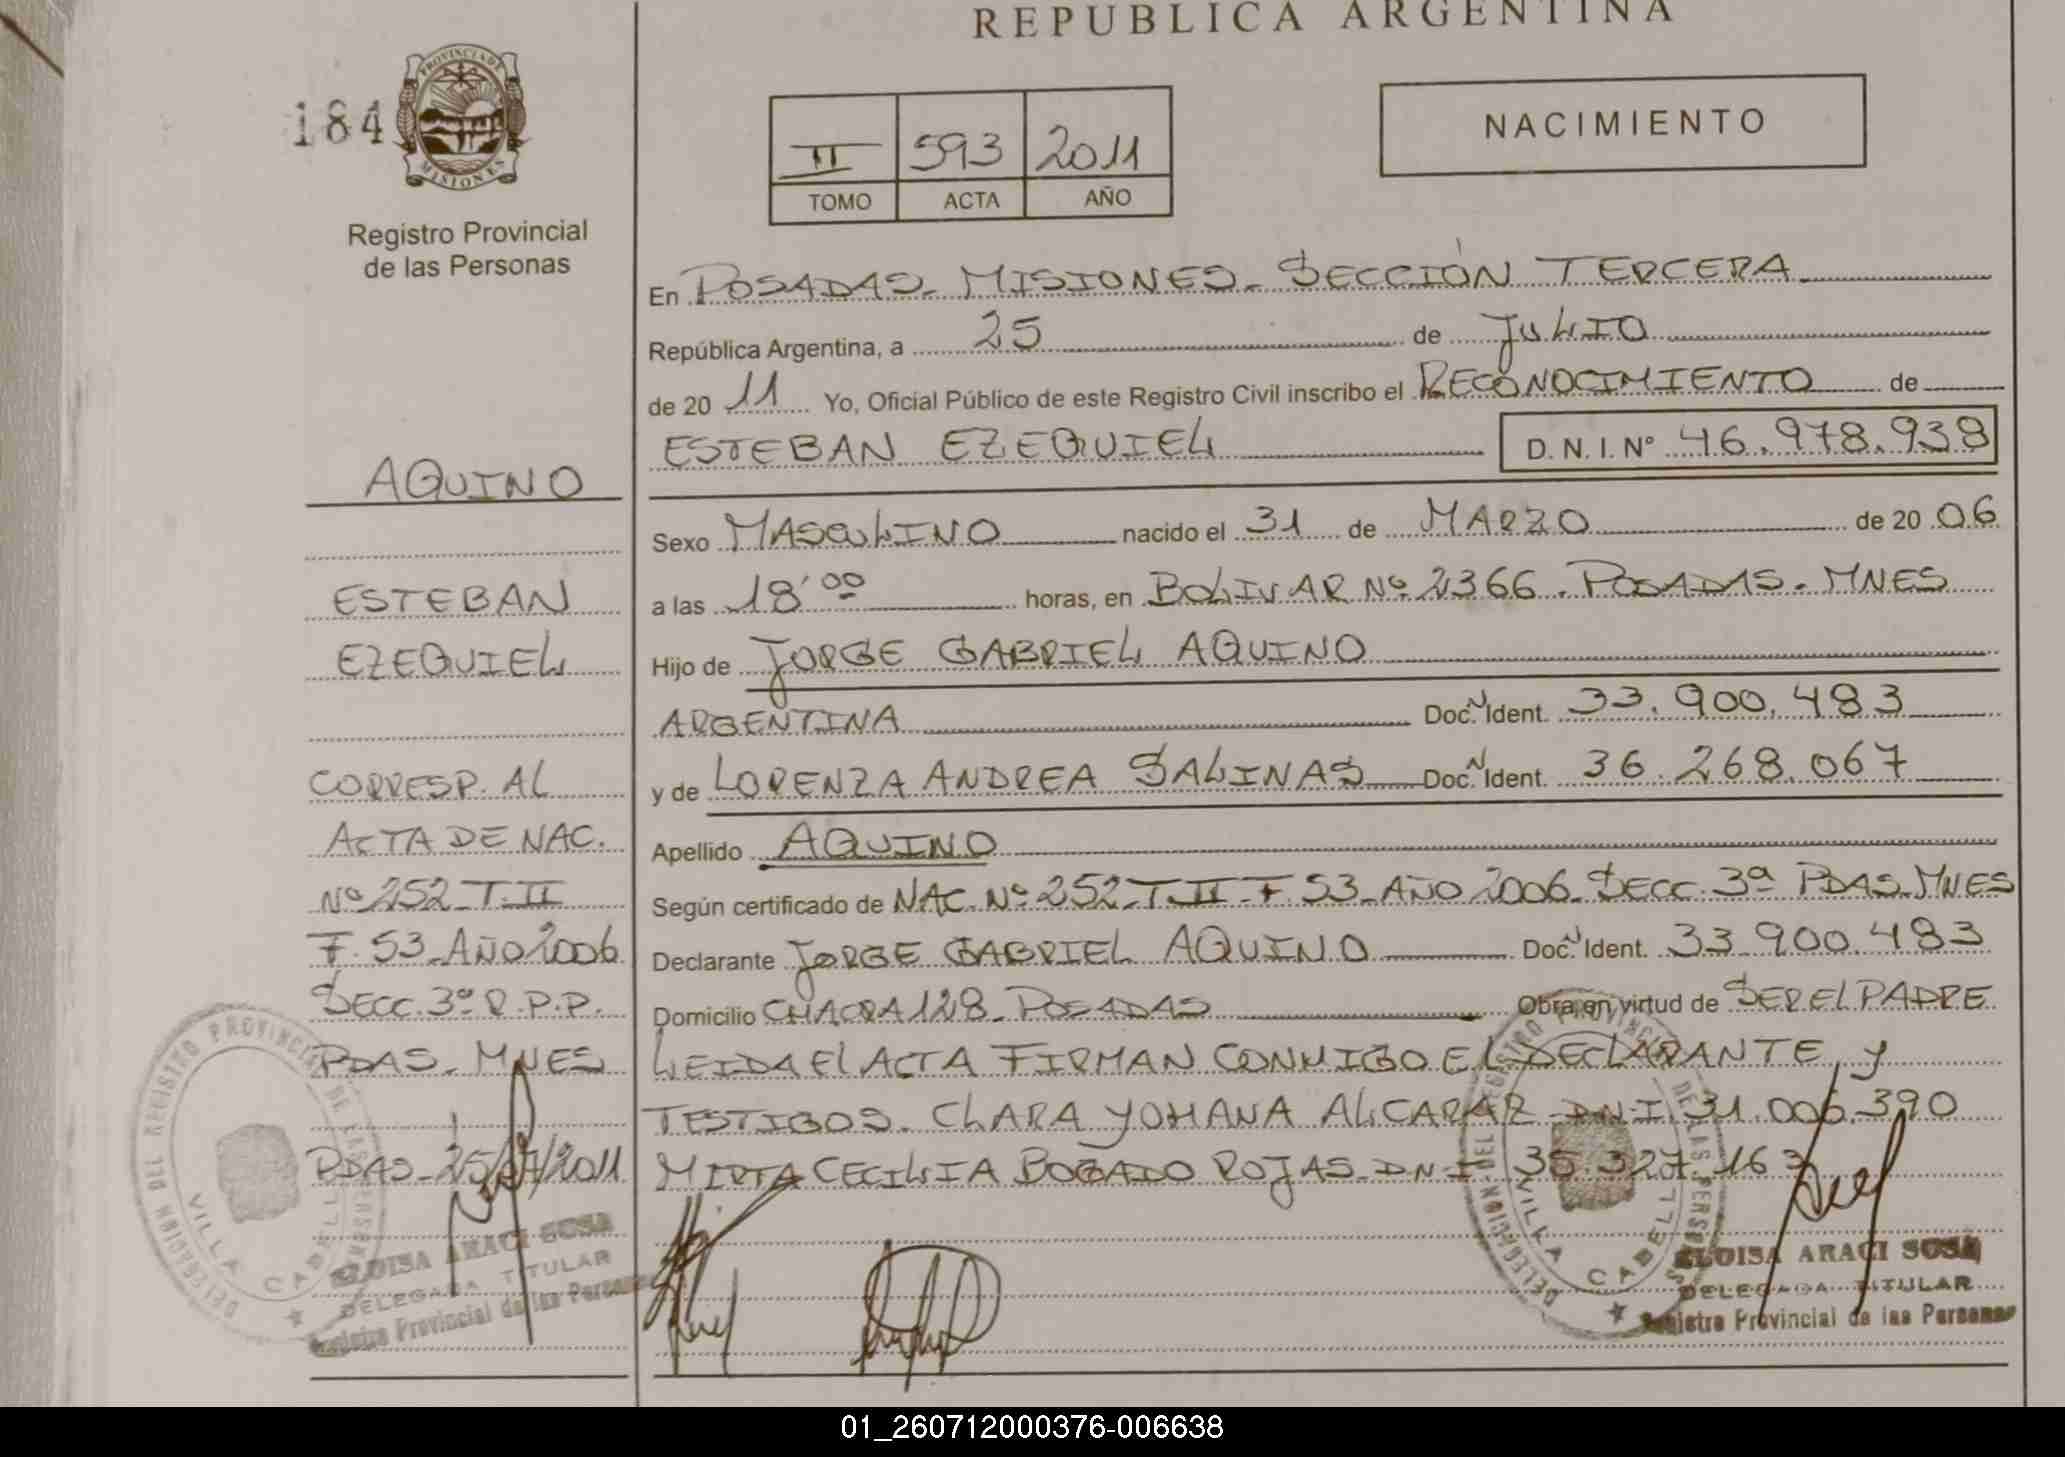 REPUBLICA ARGENTINA
184
PROVINCIA DE MISIONES
Registro Provincial
de las Personas
II 593 2011
TOMO ACTA AÑO
NACIMIENTO
En POSADAS. MISIONES. SECCIÓN TERCERA
República Argentina, a 25 de JULIO
de 20 11 Yo, Oficial Público de este Registro Civil inscribo el RECONOCIMIENTO de
ESTEBAN EZEQUIEL D. N. I. Nº 46.978.938
Sexo MASCULINO nacido el 31 de MARZO de 20 06
a las 18'00 horas, en BOLIVAR Nº 2366. POSADAS. MNES
Hijo de JORGE GABRIEL AQUINO
ARGENTINA Doc. Ident. 33.900.483
y de LORENZA ANDREA SALINAS Doc. Ident. 36.268.067
Apellido AQUINO
Según certificado de NAC. Nº 252_T.II_F.53_AÑO 2006_SECC. 3ª PDAS_MNES
Declarante JORGE GABRIEL AQUINO Doc. Ident. 33.900.483
Domicilio CHACRA 128_POSADAS Obra en virtud de SER EL PADRE
LEIDA El ACTA FIRMAN CONMIGO EL DECLARANTE y
TESTIGOS. CLARA YOHANA ALCARAZ D.N.I 31.006.390
MIRTA CECILIA BOGADO ROJAS_D.N.I 35.327.163
AQUINO
ESTEBAN
EZEQUIEL
CORRESP. AL
ACTA DE NAC.
Nº 252_T.II
F.53_AÑO 2006
SECC. 3ª R.P.P.
PDAS_MNES
PDAS_25/07/2011
DELEGACION DEL REGISTRO PROVINCIAL DE LAS PERSONAS
VILLA CABELLO
ELOISA ARACI SOSA
DELEGADA TITULAR
Registro Provincial de las Personas
DELEGACION DEL REGISTRO PROVINCIAL DE LAS PERSONAS
VILLA CABELLO
ELOISA ARACI SOSA
DELEGADA TITULAR
Registro Provincial de las Personas
01_260712000376-006638